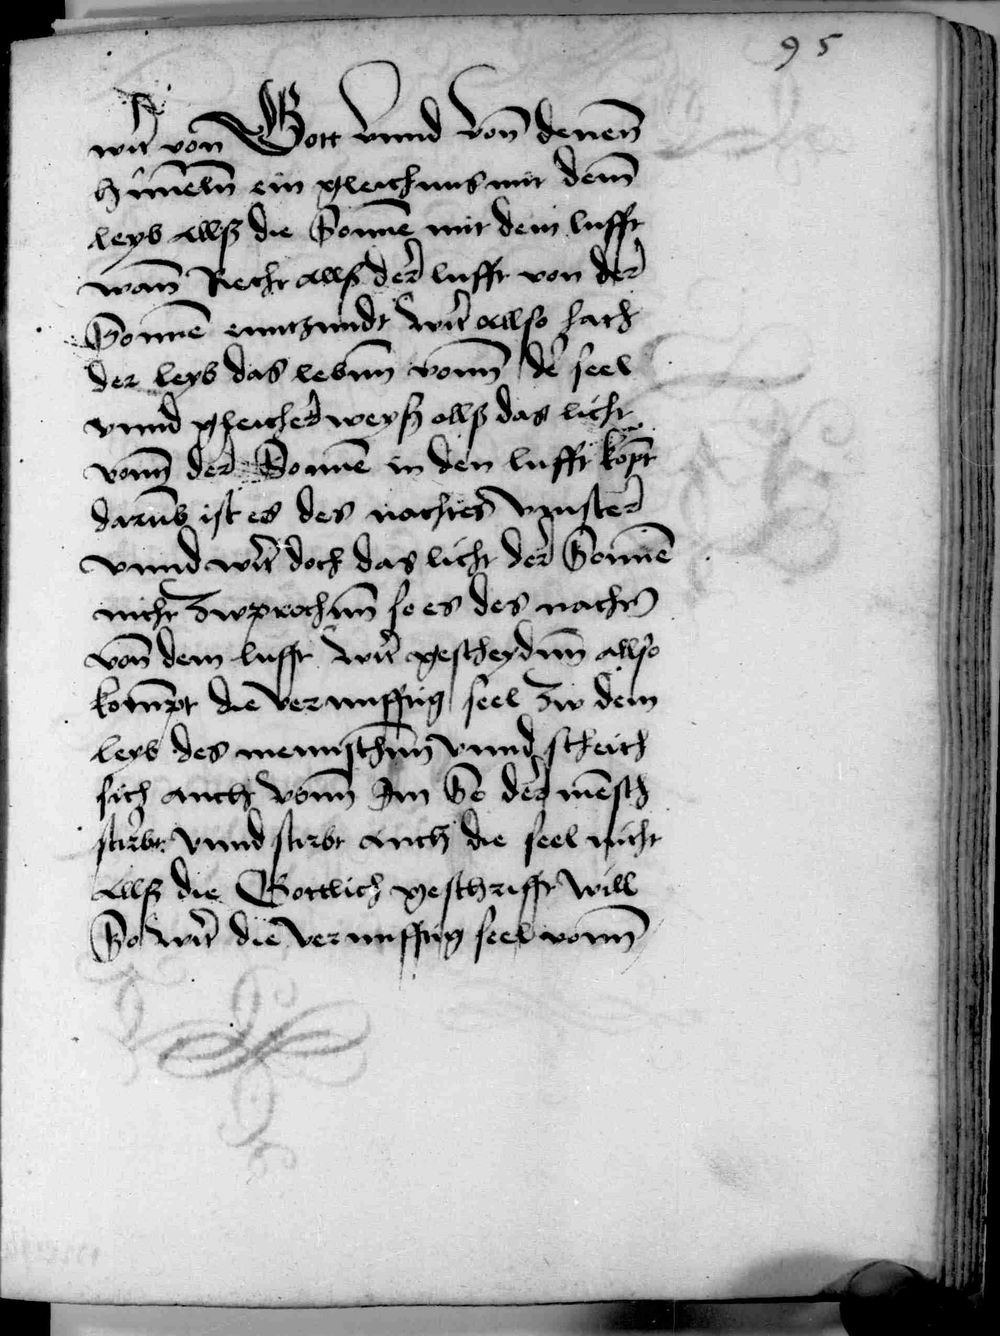 95
wir von Gott vnnd von̄ denen̄
hīmeln̄ ein gleichnus mit dem̄
leyb allß die Son̄ne mit dem lufft
wan̄ Recht allß der lufft von der
Son̄ne enntzundt wirt allso hath
der leyb das lebnn vonn̄ der seel
vnnd gleicher weyß allß das licht
vonn̄ der Son̄ne in den lufft kōpt
darūb ist es des nachtes vinster
vnnd wirt doch das licht der Son̄ne
nicht zwprochnn̄ so es des nachtz
von̄ dem lufft wirt gescheydnn̄ allso
kommpt die vernunfftig seel zw dem
leyb des mennschnn̄ vnnd scheith
sich auch vonn̄ Im So der mēsch
stirbt vnnd stirbt auch die seel nicht
allß die Gottlich geschrifft will
So wirt die vernunfftig seel vonn̄